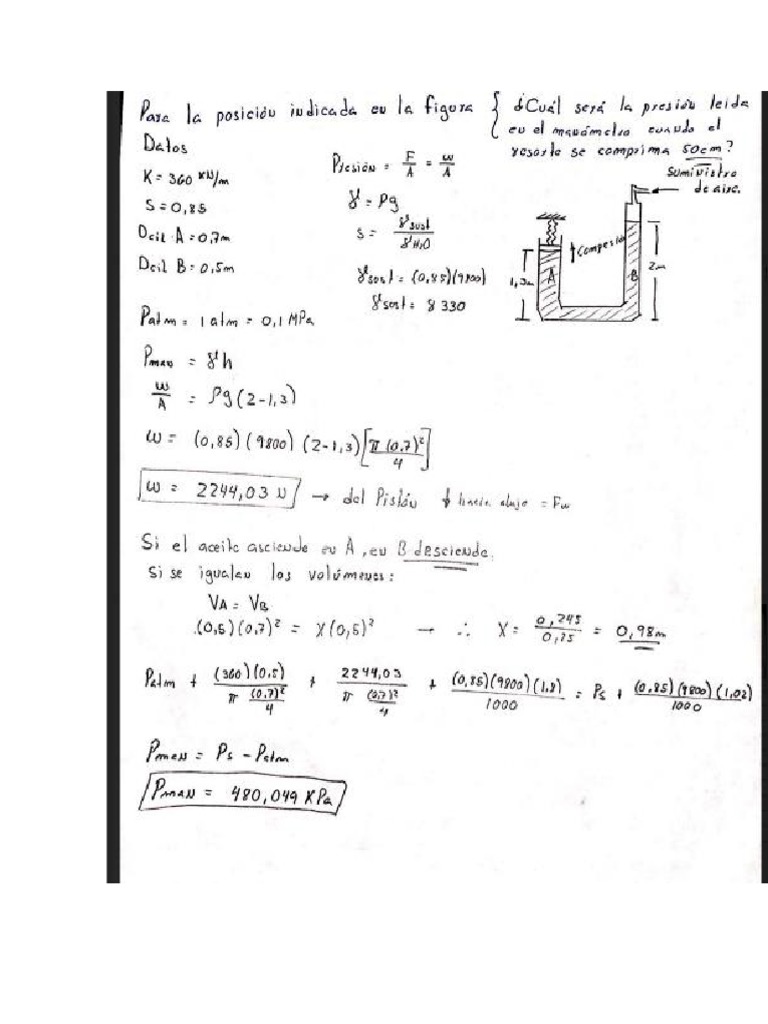 Para la posición indicada en la figura { ¿Cuál será la presión leida
en el manómetro cuando el
resorte se comprima 50cm?
Datos
K = 360 KN/m
S = 0,85
Dcil A = 0,7m
Dcil B = 0,5m
Presión = F/A = w/A
γ = ρg
s = γsust/γH2O
γsost = (0,85)(9800)
γsost = 8 330
Suministro
de aire.
Compresión
1,3m
A
B
2m
Patm = 1 atm = 0,1 MPa
Pman = γh
w/A = ρg(2-1,3)
w = (0,85)(9800)(2-1,3)[π(0.7)²/4]
w = 2244,03 N → del Pistón ↓ hacia abajo = Fw
Si el aceite asciende en A, en B desciende.
Si se igualan los volúmenes:
VA = VB
(0,5)(0,7)² = X(0,5)² → ∴ X = 0,245/0,25 = 0,98m
Patm + (360)(0,5)/π(0,7)²/4 + 2244,03/π(0,7)²/4 + (0,85)(9800)(1,8)/1000 = Ps + (0.85)(9800)(1,02)/1000
Pman = Ps - Patm
PMAN = 480,049 KPa